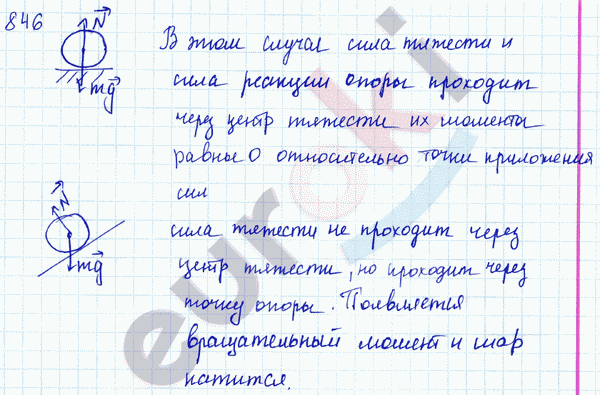 846
N
mg
В этом случае сила тяжести и
сила реакции опоры проходит
через центр тяжести их моменты
равные 0 относительно точки приложения
сил
N
mg
сила тяжести не проходит через
центр тяжести, но проходит через
точку опоры. Появляется
вращательный момент и шар
катится.
euroki